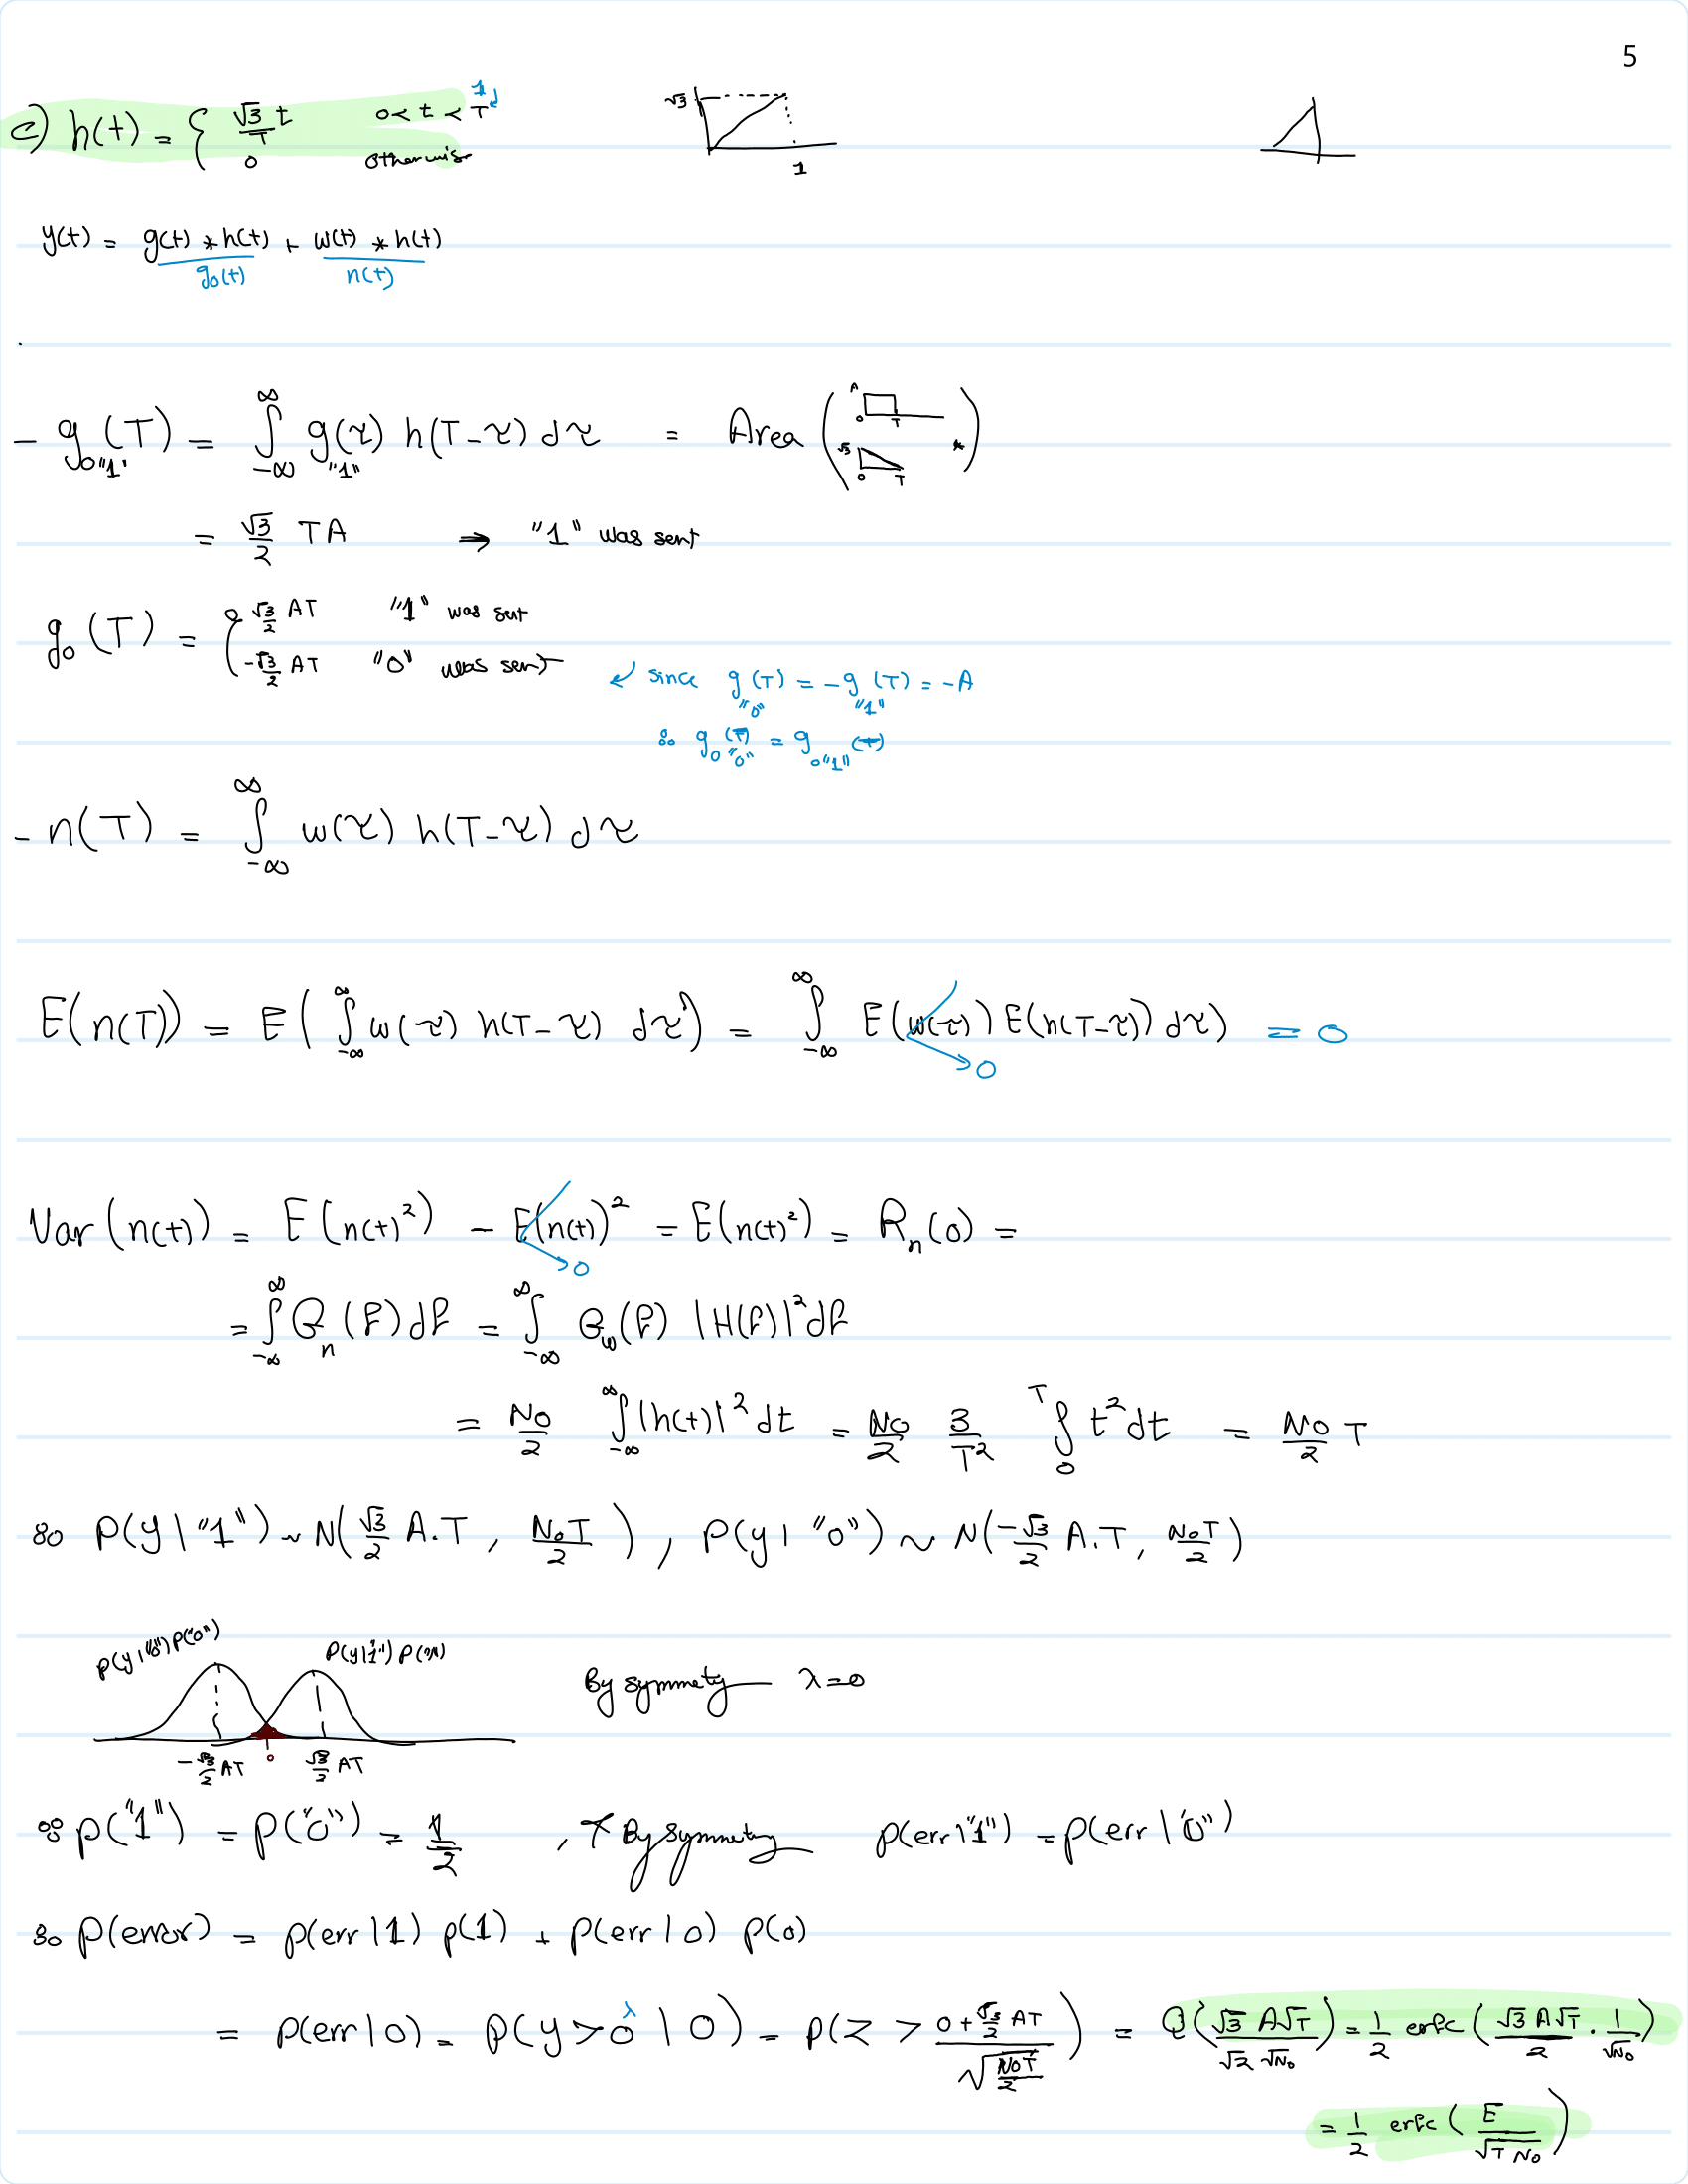 5
c) h(t) = { √3/T t 0 < t < T 1
0 otherwise
√3 1
y(t) = g(t) * h(t) + w(t) * h(t)
g₀(t) n(t)
- g₀"1"(T) = ∫_{-∞}^{∞} g"1"(τ) h(T-τ) dτ = Area ( A 0 T
√3 0 T * )
= √3/2 TA → "1" was sent
g₀(T) = { √3/2 AT "1" was sent
-√3/2 AT "0" was sent
↙ since g"0"(T) = -g"1"(T) = -A
∴ g₀"0"(T) = g₀"1"(T)
- n(T) = ∫_{-∞}^{∞} w(τ) h(T-τ) dτ
E(n(T)) = E( ∫_{-∞}^{∞} w(τ) h(T-τ) dτ ) = ∫_{-∞}^{∞} E(w(τ)) E(h(T-τ)) dτ) = 0
→0
Var(n(t)) = E(n(t)²) - E(n(t))² = E(n(t)²) = Rₙ(0) =
→0
= ∫_{-∞}^{∞} Gₙ(f) df = ∫_{-∞}^{∞} G_w(f) |H(f)|² df
= N0/2 ∫_{-∞}^{∞} |h(t)|² dt = N0/2 3/T² ∫_0^T t² dt = N0/2 T
∴ P(y|"1") ~ N(√3/2 A.T, N₀T/2), P(y|"0") ~ N(-√3/2 A.T, N₀T/2)
P(y|"0")P("0") P(y|"1")P("1")
By symmety λ=0
-√3/2 AT 0 √3/2 AT
∵ p("1") = p("0") = 1/2 , By symmety p(err|"1") = p(err|"0")
∴ p(error) = p(err|1) p(1) + p(err|0) p(0)
= p(err|0) = p(y > 0 | 0) = p(Z > (0 + √3/2 AT)/√(N0T/2)) = Q(√3 A√T/(√2 √N₀)) = 1/2 erfc(√3 A√T/2 . 1/√N₀)
λ
= 1/2 erfc(E/√T N₀)